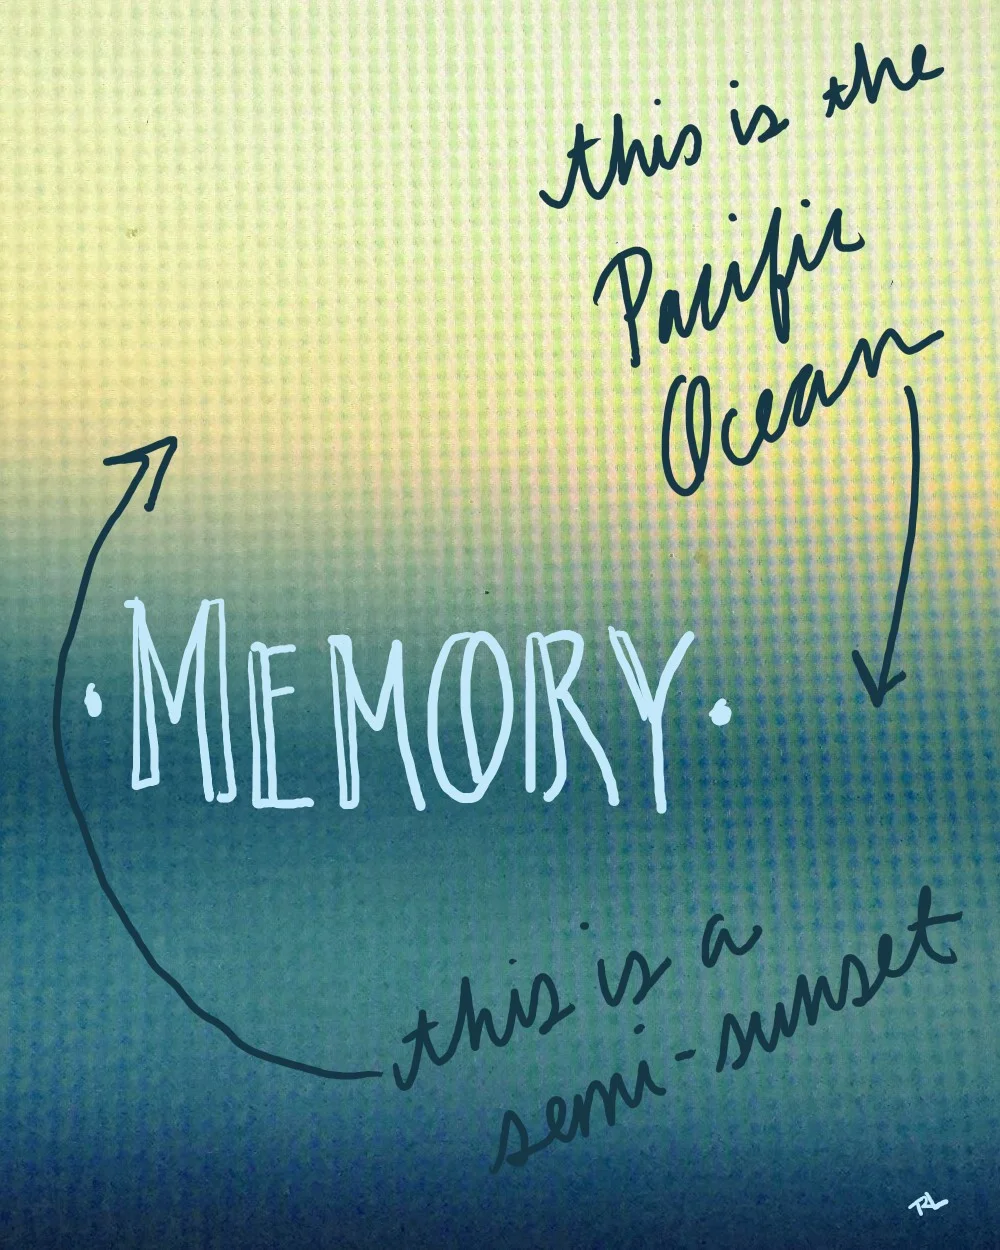 this is the
Pacific
Ocean
· MEMORY ·
this is a
semi-sunset
RL